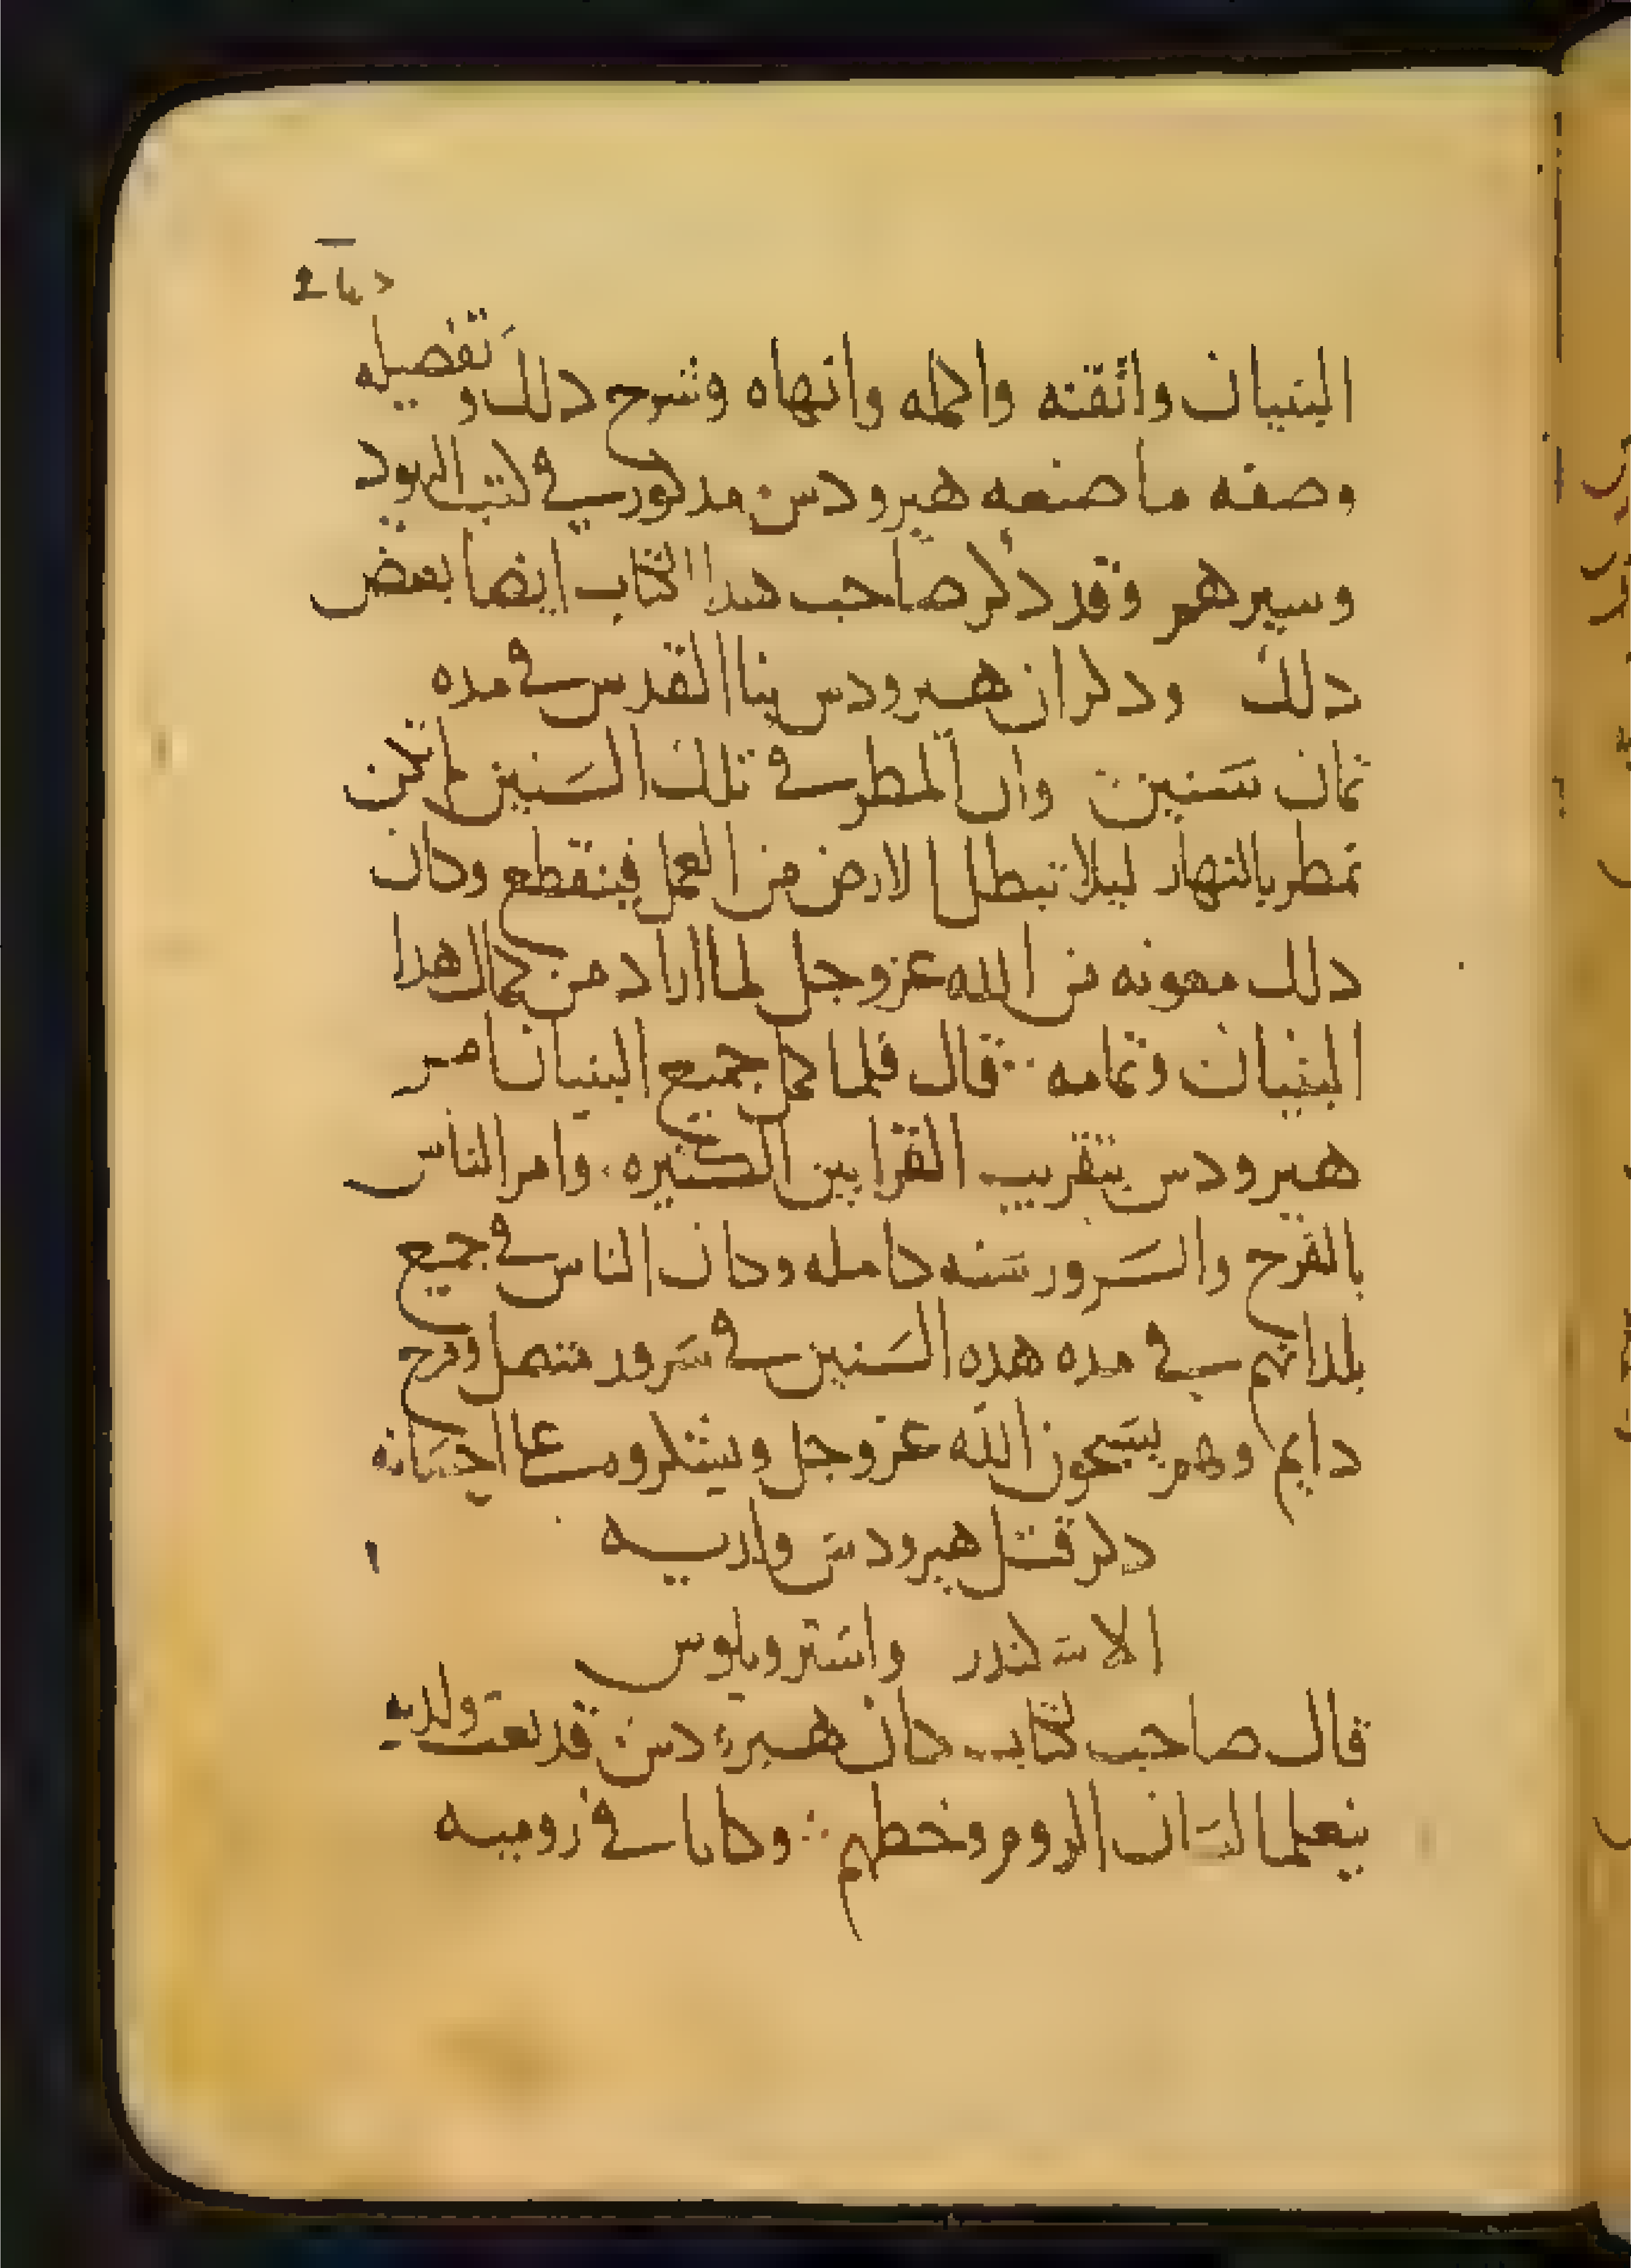 البنيان واتقنه واكمله وانهاه وشرح دلك وتفصيله
وصفه ما صنعه هيرودس مدكور في كتب اليهود
وسيرهم وقد دكر صاحب هدا الكتاب ايضا بعض
دلك ودكر ان هيرودس بنا القدس في مده
ثمان سنين وان المطر في تلك السنين لم تكن
تمطر بالنهار ليلا تبطل الارض من العمل فينقطع وكان
دلك معونه من الله عز وجل لما اراد من كمال هدا
البنيان وتمامه قال فلما كمل جميع البنيان امر
هيرودس بتقريب القرابين الكثيره وامر الناس
بالفرح والسرور سنه كامله وكان الناس في جميع
بلدانهم في مده هده السنين في سرور متصل وفرح
دايم وهم يسبحون الله عز وجل ويشكرونه على احسانه
دكر قتل هيرودس
الاسكندر
قال صاحب الكتاب كان هيرودس قد بعث ولديه
يتعلما لسان الروم وخطهم وكانا في روميه